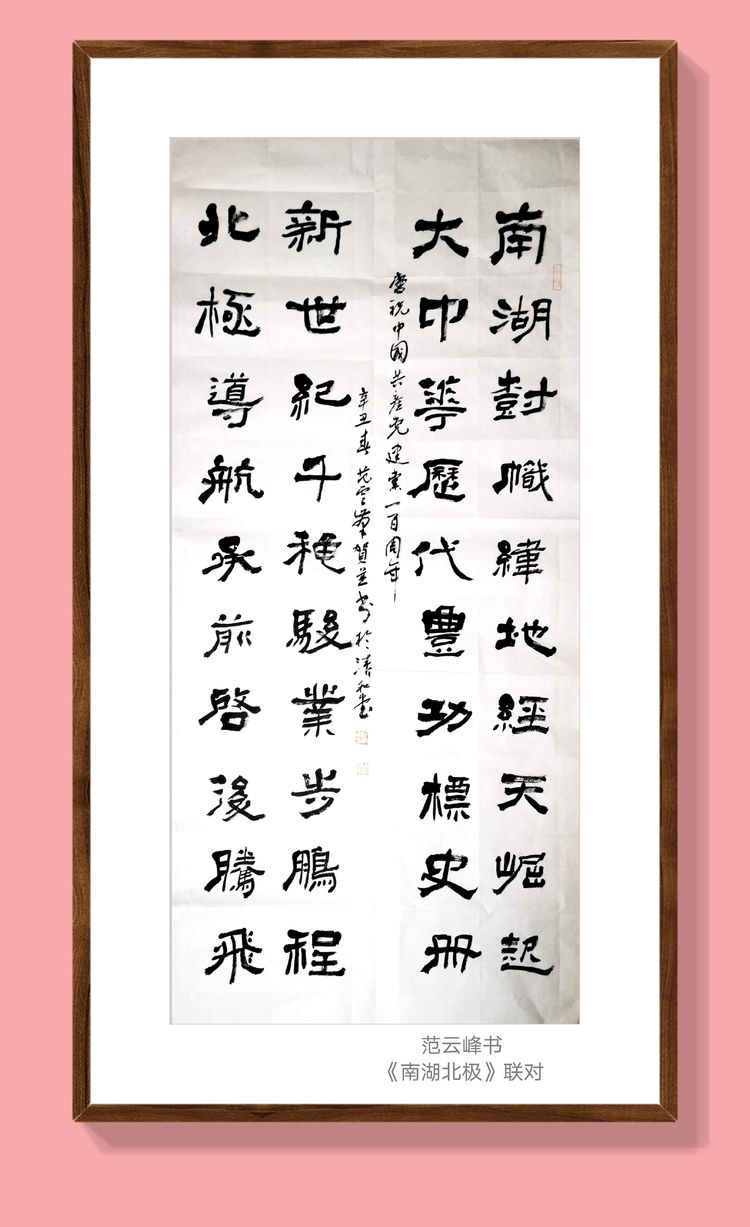 南湖尌幟緯地經天崛起
大中華歷代豐功標史冊
北極導航承前啓後騰飛
新世紀千穐駿業步鵬程
慶祝中國共產党建黨一百周年
辛丑春范雲峯賀並書於清和堂
范云峰书
《南湖北极》联对